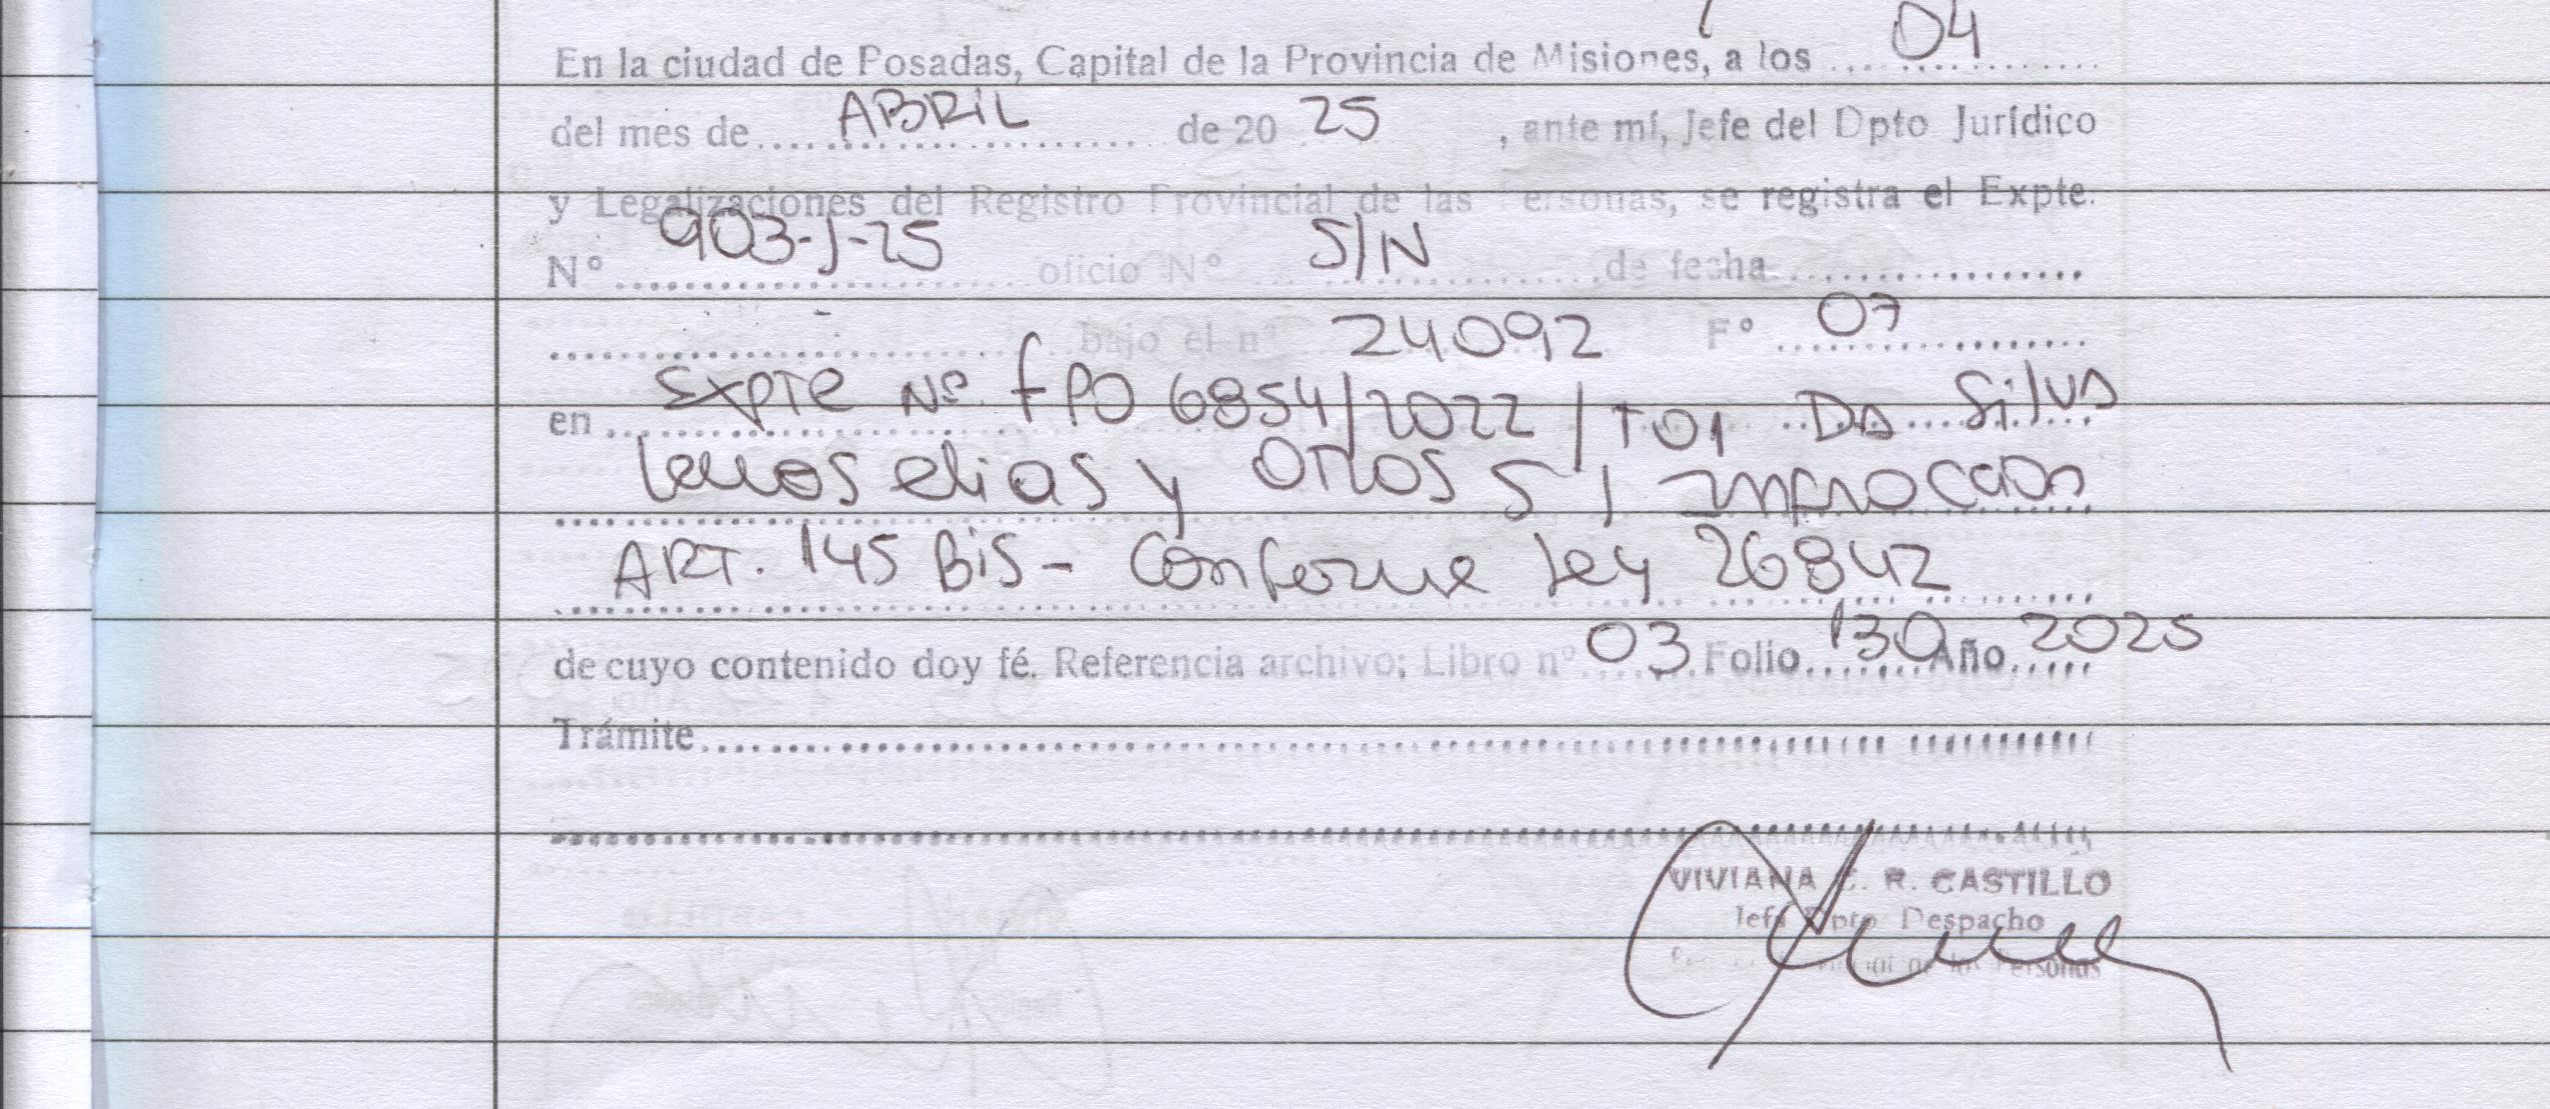 En la ciudad de Posadas, Capital de la Provincia de Misiones, a los 04
del mes de ABRIL de 20 25, ante mí, Jefe del Dpto Jurídico
y Legalizaciones del Registro Provincial de las Personas, se registra el Expte.
Nº 903-J-25 oficio Nº S/N de fecha
bajo el nº 24092 Fº 07
en Expte Nº FPO 6854/2022/TO1 DA Silva
elias y Otros S/ Infraccion
ART. 145 Bis - Conforme Ley 26842
de cuyo contenido doy fé. Referencia archivo; Libro nº 03 Folio 130 Año 2025
Trámite
VIVIANA C. R. CASTILLO
Jefa Dpto Despacho
de las Personas